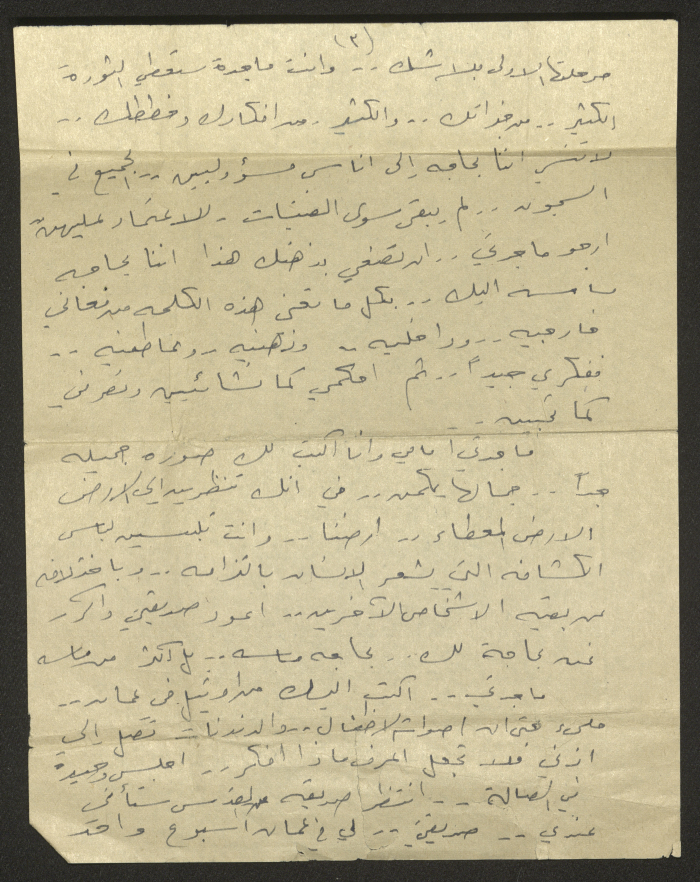 (٣)
مرحلتها الاولى بلا شك .. وانت ماجدة ستعطي الثورة
الكثير .. من خبراتك .. والكثير .. من افكارك وخططك ..
لا تنسي اننا بحاجه إلى اناس مسؤولين .. الجميع في
السجون .. لم يبقى سوى الفتيات . للاعتماد عليهن
ارجو ماجدتي .. ان تضعي بذهنك هذا اننا بحاجه
ماسه اليك .. بكل ما تعني هذه الكلمه من معاني
خارجيه .. وداخليه .. وذهنيه .. وعاطفيه ..
ففكري جيداً .. ثم احكمي كما تشائين وتصرفي
كما تحبين ..
ماجدتي امامي وانا اكتب لك صوره جميله
جداً .. جمالها يكمن .. في انك تنظرين إلى الارض
الارض المعطاء .. ارضنا .. وانت تلبسين لباس
الكشافه التي يشعر الانسان بالتزامه .. وباختلافه
عن بقيه الاشخاص الآخرين .. اعود صديقتي واكرر
نحن بحاجة لك .. بحاجه ماسه .. بل اكثر من ماسه
ماجدتي .. اكتب اليك من اوتيل في عمان ..
مليء حتى ان اصوات الاطفال .. والدندنات تصل إلى
اذني فلا تجعل اعرف ماذا افكر .. اجلس وحيدة
في الصالة .. انتظر صديقه من القدس ستأتي
عندي .. صديقتي .. لي في عمان اسبوع واحد